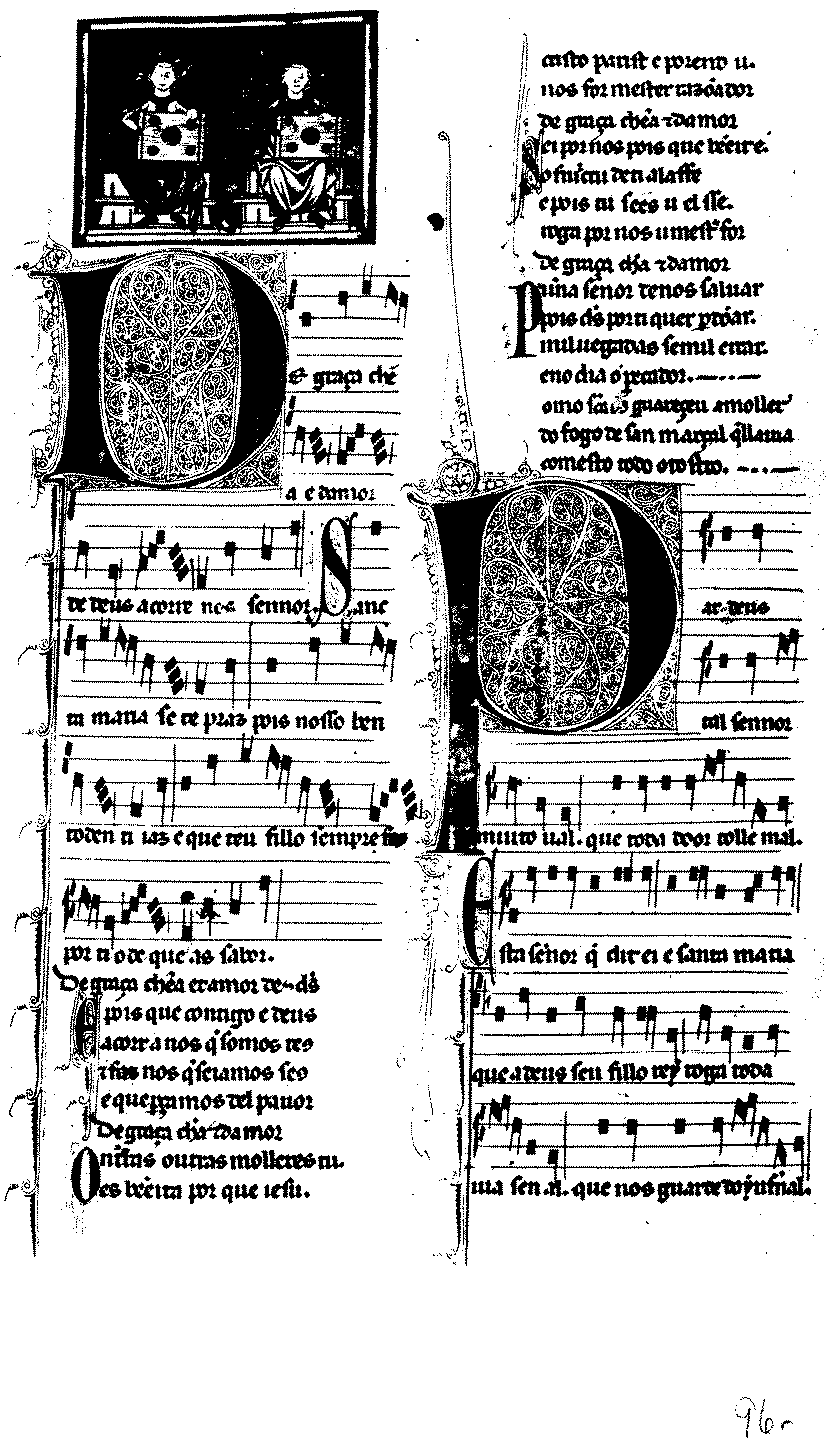 E graça chẽ
a e damor
de deus acorre nos sennor. Sanc
ta maria se te praz pois nosso ben
toden ti iaz e que teu fillo sempre faz
por ti o de que as sabor.
De graça chẽa et amor de d̃s
E pois que contigo e deus
acorr a nos q̃ somos teus
e que perçamos del pauor
De graça chẽa ⁊ damor
ontras outras molleres tu.
es bẽeita por que iesu.
cristo parist e porend u.
nos for mester razõador
De graça chẽa ⁊ damor
ei por nos pois que bẽeita.
o fruitu den alasse
e pois tu sees u el sse.
roga por nos u mest̃ for
De graça chẽa ⁊ damor
Punna sennor de nos saluar
pois d̃s por ti quer perdõar.
mil uegadas se mil errar.
eno dia o pecador.
omo guareceu a moller
do fogo de san marçal q̃ ll auia
comesto todo o rostro.
Par deus
tal sennor
muito ual. que toda door tolle mal.
Esta sẽnor q̃ dit ei e santa maria
que a deus seu fillo rey roga toda
uia sen al. que nos guarde do ynfernal.
96r